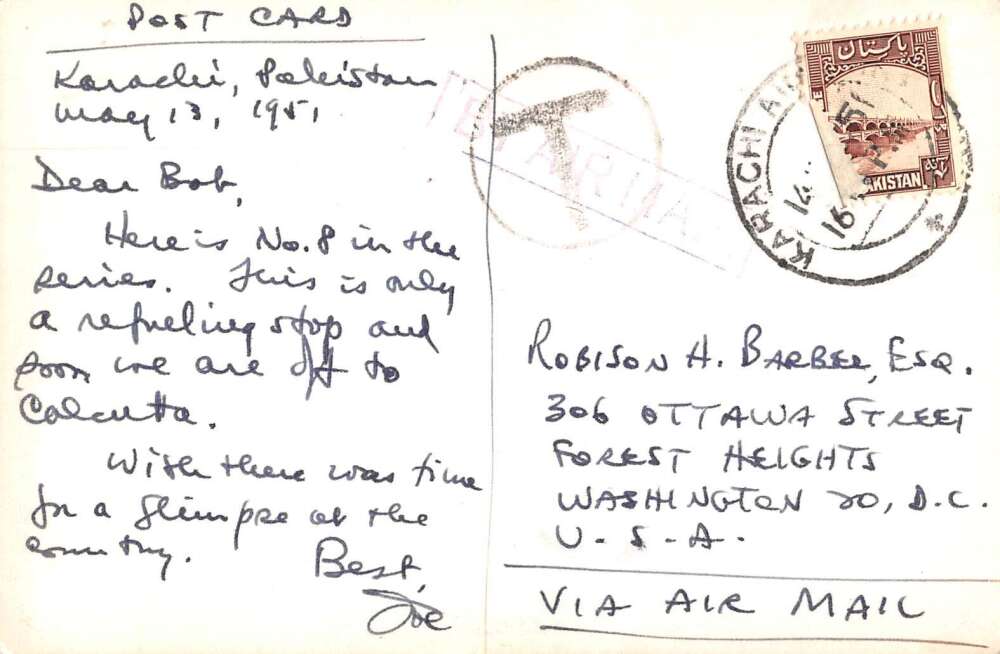 POST CARD
Karachi, Pakistan
May 13, 1951
Dear Bob,
Here is No. 8 in the
series. This is only
a refueling stop and
soon we are off to
Calcutta.
Wish there was time
for a glimpse at the
country.
Best,
Joe
T
KARACHI AIR
16
پاکستان
PAKISTAN
ROBISON H. BARBEE, ESQ.
306 OTTAWA STREET
FOREST HEIGHTS
WASHINGTON 20, D.C.
U.S.A.
VIA AIR MAIL